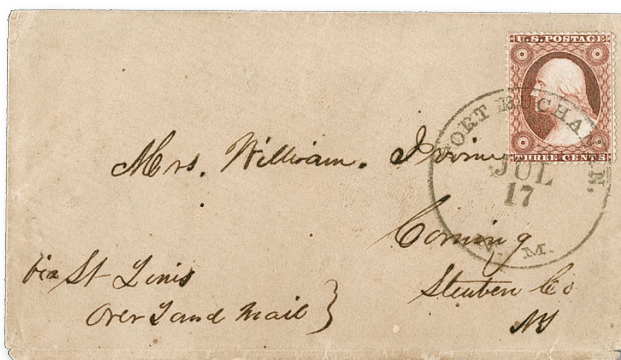 U.S. POSTAGE
THREE CENTS
FORT BUCHANAN,
JUL
17
N. M.
Mrs. William. Irvine
Corning
Steuben Co
NY
via St Louis
Over Land Mail